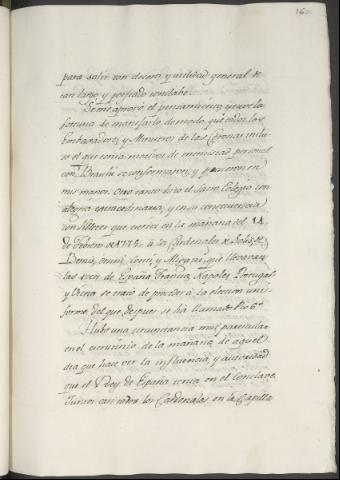 160.
para salir con decoro y utilidad general de
tan largo y porfiado conclave.
Se me aprovó el pensamiento, y tuve la
fortuna de manejarlo de modo, que todos los
Embaxadores, y Ministros de las Coronas inclu-
so el que tenia motivos de enemistad personal
con Braschi se conformaron, y pusieron en
mis manos. Otro tanto hizo el Sacro Colegio con
alegria extraordinaria, y en su consecuencia
con Villetes que tuvieron en la mañana del 14
de Febrero de 1775. a los Cardenales de Solis, de
Bernis, Orsini, Conti, y Migazzi, que llevaban
las voces de España, Francia, Napoles, Portugal,
y Viena se trató de proceder a la eleccion uni-
forme del que despues se ha llamado Pio 6º.
Hubo una circunstancia muy particular
en el escrutinio de la mañana de aquel
dia que hace ver la influencia, y autoridad
que el Rey de España tenia en el Conclave.
Juntos casi todos los Cardenales en la Capilla